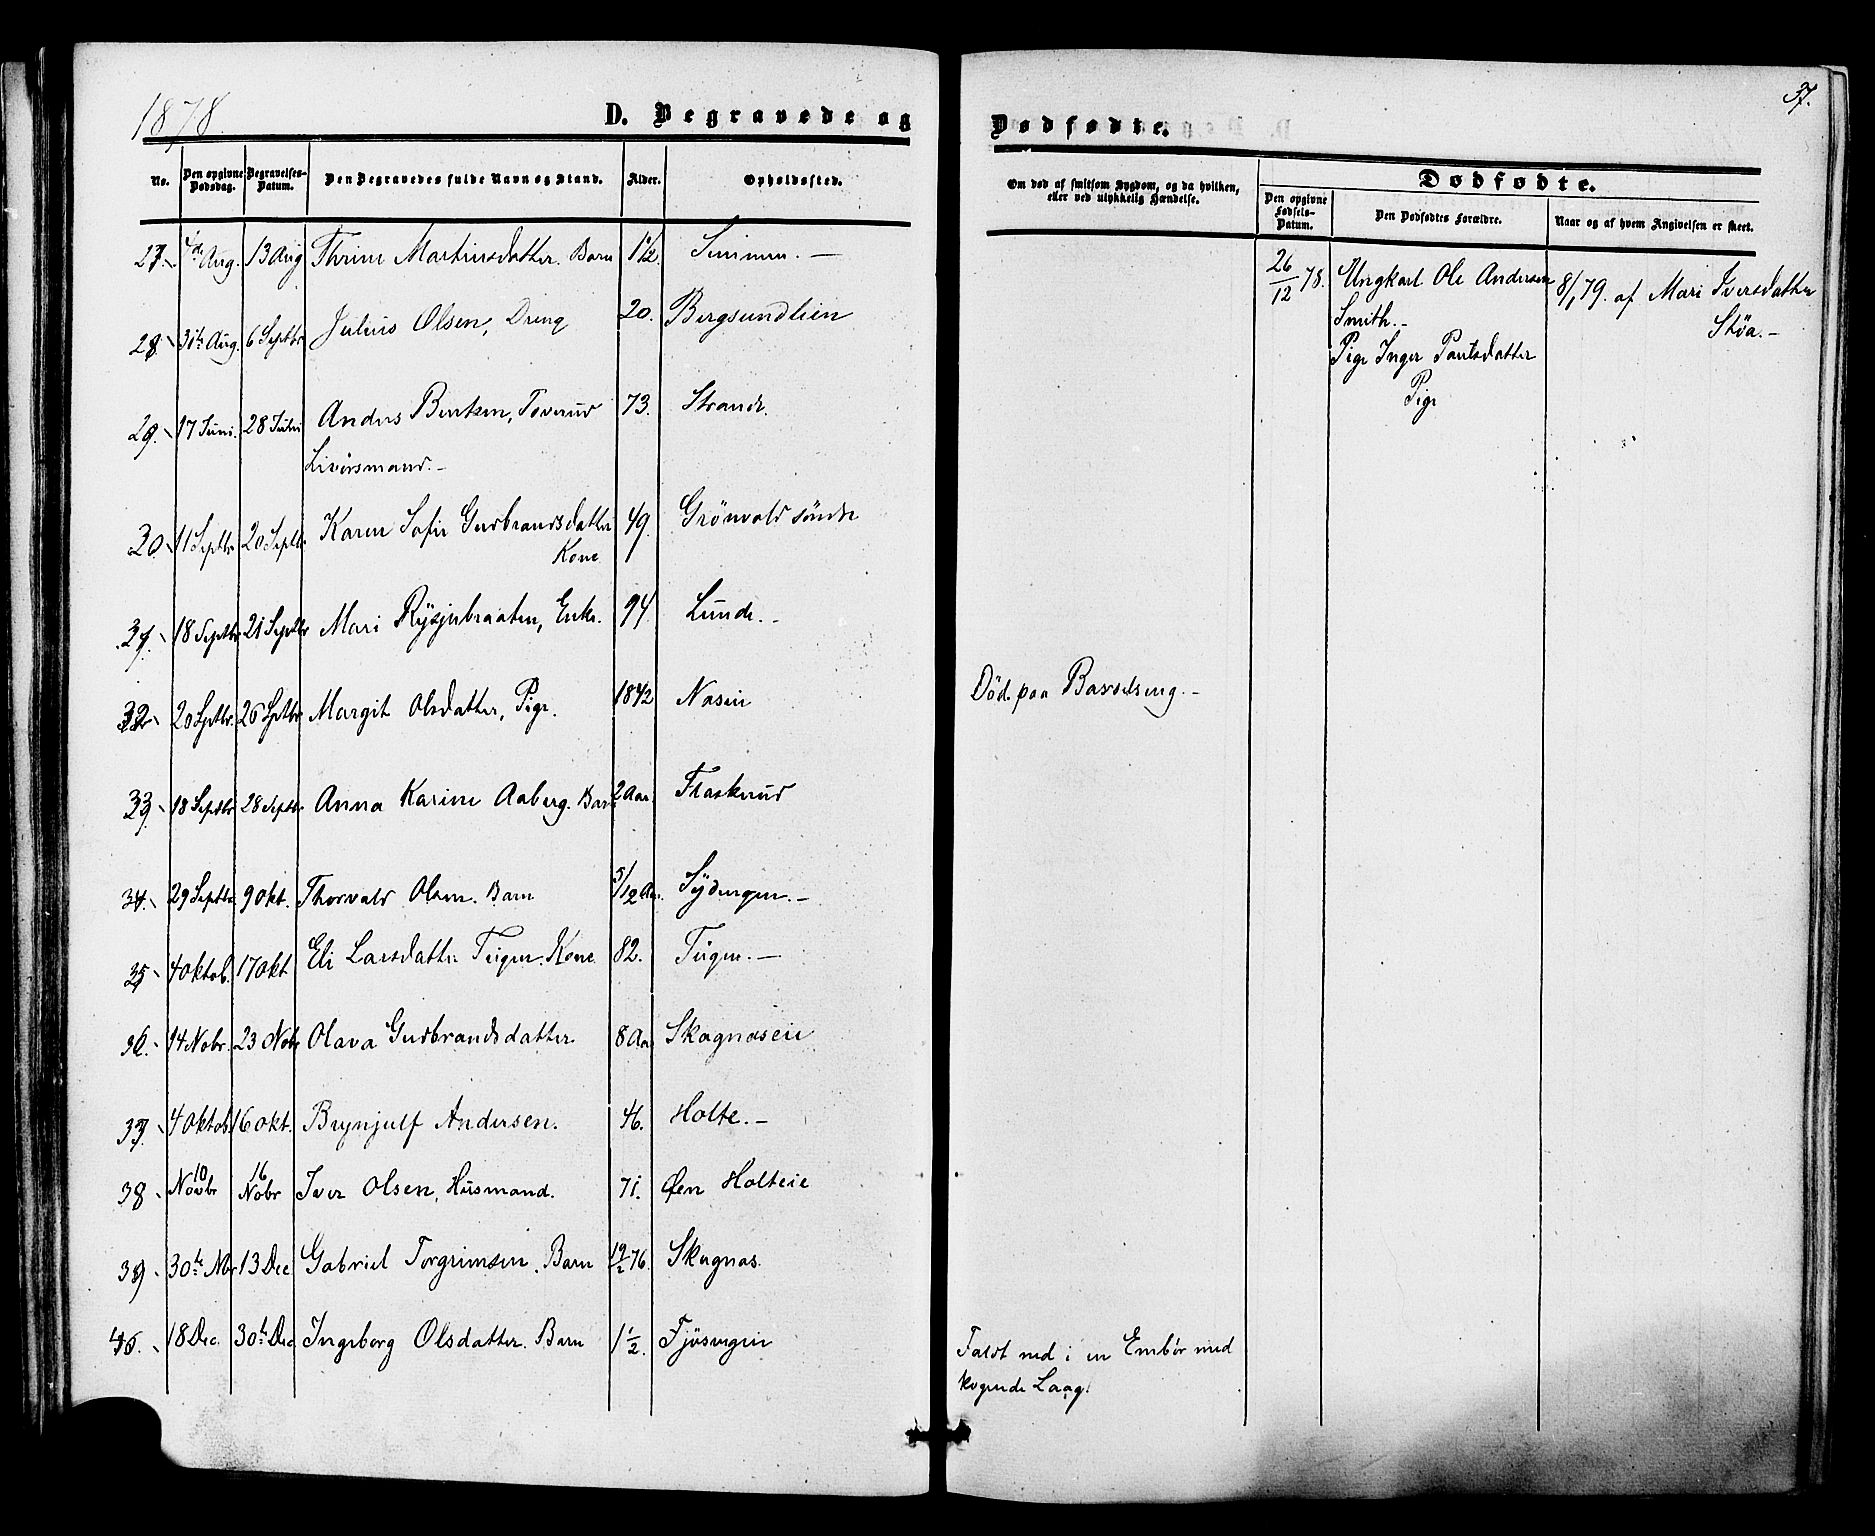 1878.
D. Begravede og
No.
Den opgivne Dødsdag.
Begravelses-Datum.
Den Begravedes fulde Navn og Stand.
Alder.
Opholdssted.
27. Aug. 13 Aug Thrine Martinusdatter. Barn 1 1/2
28. 31te Aug. 6 Septbr Julius Olsen, Dreng 20. Bergsundlien
29. 17 Juni. 28 Juni Anders Bentsen, Toverud 73. Strande.
30. 11 Septbr 20 Septbr Karen Sofie Gudbrandsdatter 49. Grönvold söndre
Kone
31. 18 Septbr 21 Septbr Mari Rysjebraaten, Enke. 94. Lunde.
32 20 Septbr. 26 Septbr Margit Olsdatter, Pige. 1842 Nasen
33. 18 Septbr 28 Septbr Anna Karine Aaberg. Barn 2 Aar. Flaskerud
34. 29 Septbr 9 Okt. Thorvald Olsen. Barn 5/12 Aar.
35 4 Oktob. 17 Okt Eli Larsdatter Teigen. Kone 82. Teigen.
36. 14 Nobr. 23 Nobr Olava Gudbrandsdatter. 8 Aar Skagnaseie
37. 4 Oktob. 16 Okt. Brynjulf Andersen. 46. Holte.
38 10 Novbr 16 Nobr Iver Olsen, Husmand. 71. Øen Holteie
39 30te Nbr 13 Dec Gabriel Torgrimsen. Barn 19/2 76. Skagnas.
40. 18 Dec. 30te Dec Ingeborg Olsdatter. Barn 1 1/2. Fjösvegen
37.
Dødfødte.
Om død af smitsom Sygdom, og da hvilken,
eller ved ulykkelig Hændelse.
Dødfødte.
Den opgivne Fødsels-Datum.
Den Dødfødtes Forældre.
Naar og af hvem Angivelsen er skeet.
26/12 78. Ungkarl Ole Andersen 8/1 79. af Mari Iversdatter
Smith. Stöa.
Pige Inger Paulsdatter
Pige
Död paa Barselseng.
Faldt ned i en Embör med
kogende Laag.